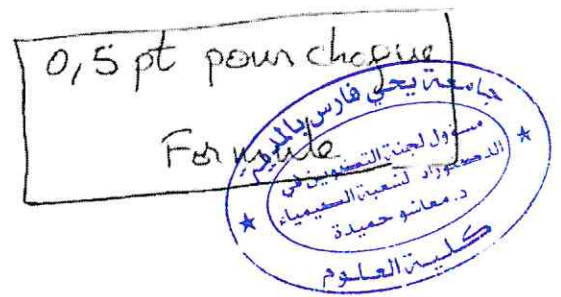 0,5 pt pour chaque
Formule
جامعة يحي فارس بالمدية
مسؤول لجنة التكوين في
الدكتوراه لشعبة الكيمياء
د. معاشو حميدة
كلية العلوم